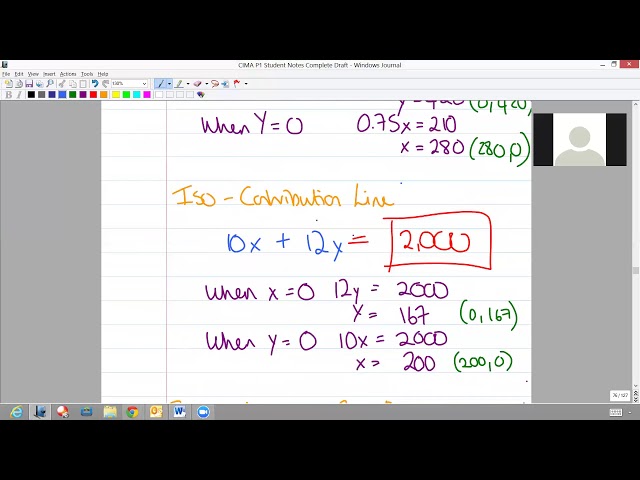 CIMA P1 Student Notes Complete Draft - Windows Journal
File Edit View Insert Actions Tools Help
130%
y = 420 (0,420)
When Y=0 0.75x = 210
x = 280 (280,0)
Iso-Contribution Line
10x + 12y = 2,000
When x=0 12y = 2000
Y = 167 (0,167)
When y=0 10x = 2000
x = 200 (200,0)
76 / 127